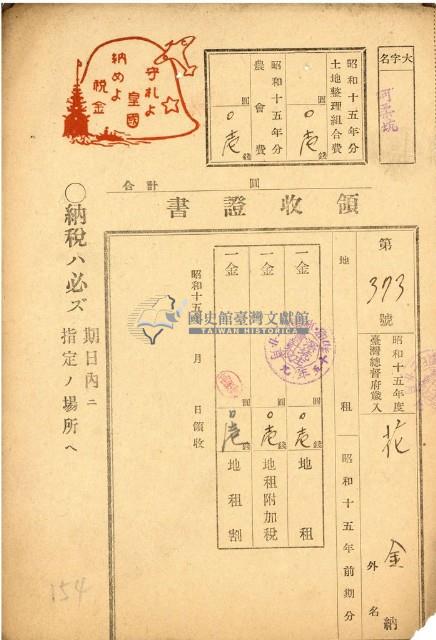 大字名
阿柔坑
昭和十五年分
土地整理組合費
圓
〇壱
錢
昭和十五年分
農會費
圓
〇壱
錢
守れよ
皇國
納めよ
税金
合計 圓
領收證書
第373號
昭和十五年度
臺灣總督府歳入
花
金
外 名納
地租 昭和十五年前期分
一金 圓 〇壱 錢 地租
一金 圓 〇壱 錢 地租附加税
一金 圓 〇壱 錢 地租割
昭和十五 月 日領收
〇納税ハ必ズ
期日内ニ
指定ノ場所ヘ
國史館臺灣文獻館
TAIWAN HISTORICA
154